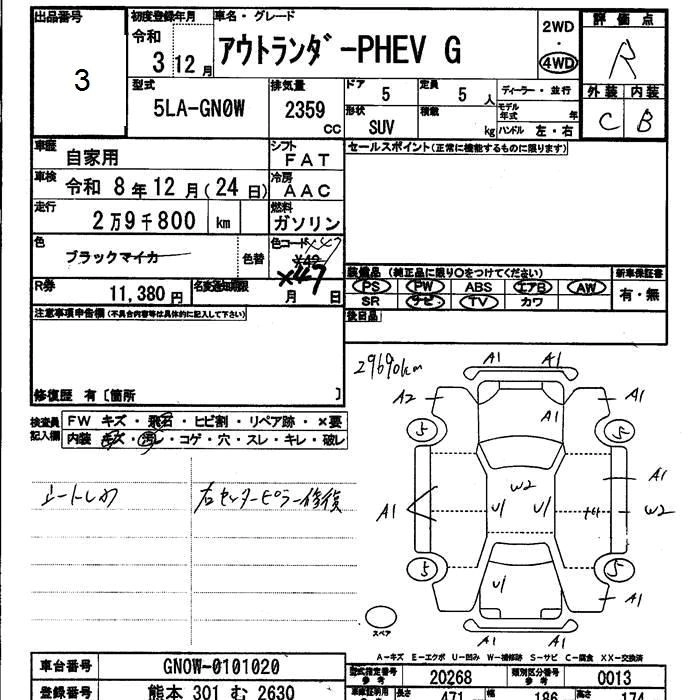 出品番号
3
初度登録年月
令和
3 12月
車名・グレード
アウトランダ゛-PHEV G
2WD
・
4WD
評価点
R
外装 内装
C B
型式
5LA-GN0W
排気量
2359
CC
ドア
5
定員
5 人
ディーラー・並行
形状
SUV
積載
kg
モデル年式 年
ハンドル 左・右
車歴
自家用
シフト
FAT
セールスポイント(正常に機能するものに限ります)
車検
令和 8年12月(24日)
冷房
AAC
走行
2万9千800 km
燃料
ガソリン
色
ブラックマイカー
色替
色コード X47
X42
X47
R券
11,380円
名変通知期限
月 日
装備品 (純正品に限り○をつけてください)
新車保証書
PS PW ABS エアB AW
SR ナビ TV カワ
有・無
後日品
注意事項申告欄(不具合内容等は具体的に記入して下さい)
修復歴 有〔箇所 〕
29690km
検査員
記入欄
FW キズ・飛石・ヒビ割・リペア跡・×要
内装 キズ・汚レ・コゲ・穴・スレ・キレ・破レ
シートしわ
右センターピラー修復
A1 A1
A2 A1 A1
5 5
A1
A1 W2 U1 U1 W2
5 5
U1 A1
A1 A1
スペア
A-キズ E-エクボ U-凹み W-補修跡 S-サビ C-腐食 XX-交換済
車台番号
GN0W-0101020
型式指定番号
参考
20268
類別区分番号
参考
0013
登録番号
熊本 301 む 2630
長さ
471
幅
186
高さ
174